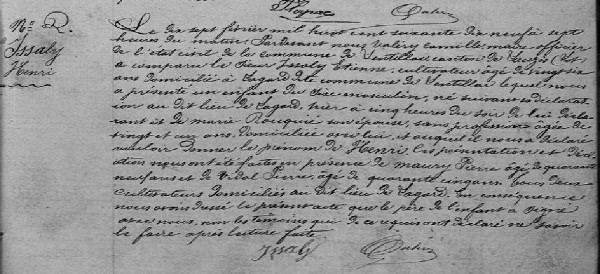 Nº 2.
Issaly
Henri
Le dix sept février mil huit cent soixante dix neuf à sept
heures du matin. Pardevant nous Valéry Camille maire officier
de l'état civil de la commune de Ventillac, canton de
a comparu le sieur Issaly Etienne, cultivateur âgé de vingt six
ans domicilié à Lagard de la commune de Ventillac lequel nous
a présenté un enfant du sexe masculin, né suivant sa déclarat
ion au dit lieu de Lagard, hier à cinq heures du soir de lui décla
rant et de marie Rouquié son épouse, sans profession âgée de
vingt et un ans domiciliée avec lui, et auquel il nous a déclaré
vouloir donner le prénom de Henri. Ces présentation et décla
ration nous ont été faites en présence de maury Pierre âgé de quarante
neuf ans et de Vidal Pierre, âgé de quarante cinq ans. tous deux
cultivateurs domiciliés au dit lieu de Lagard. En conséquence
nous avons dressé le présent acte que le père de l'enfant a signé
avec nous, non les témoins qui de ce requis ont déclaré ne savoir
le faire après lecture faite
Issaly